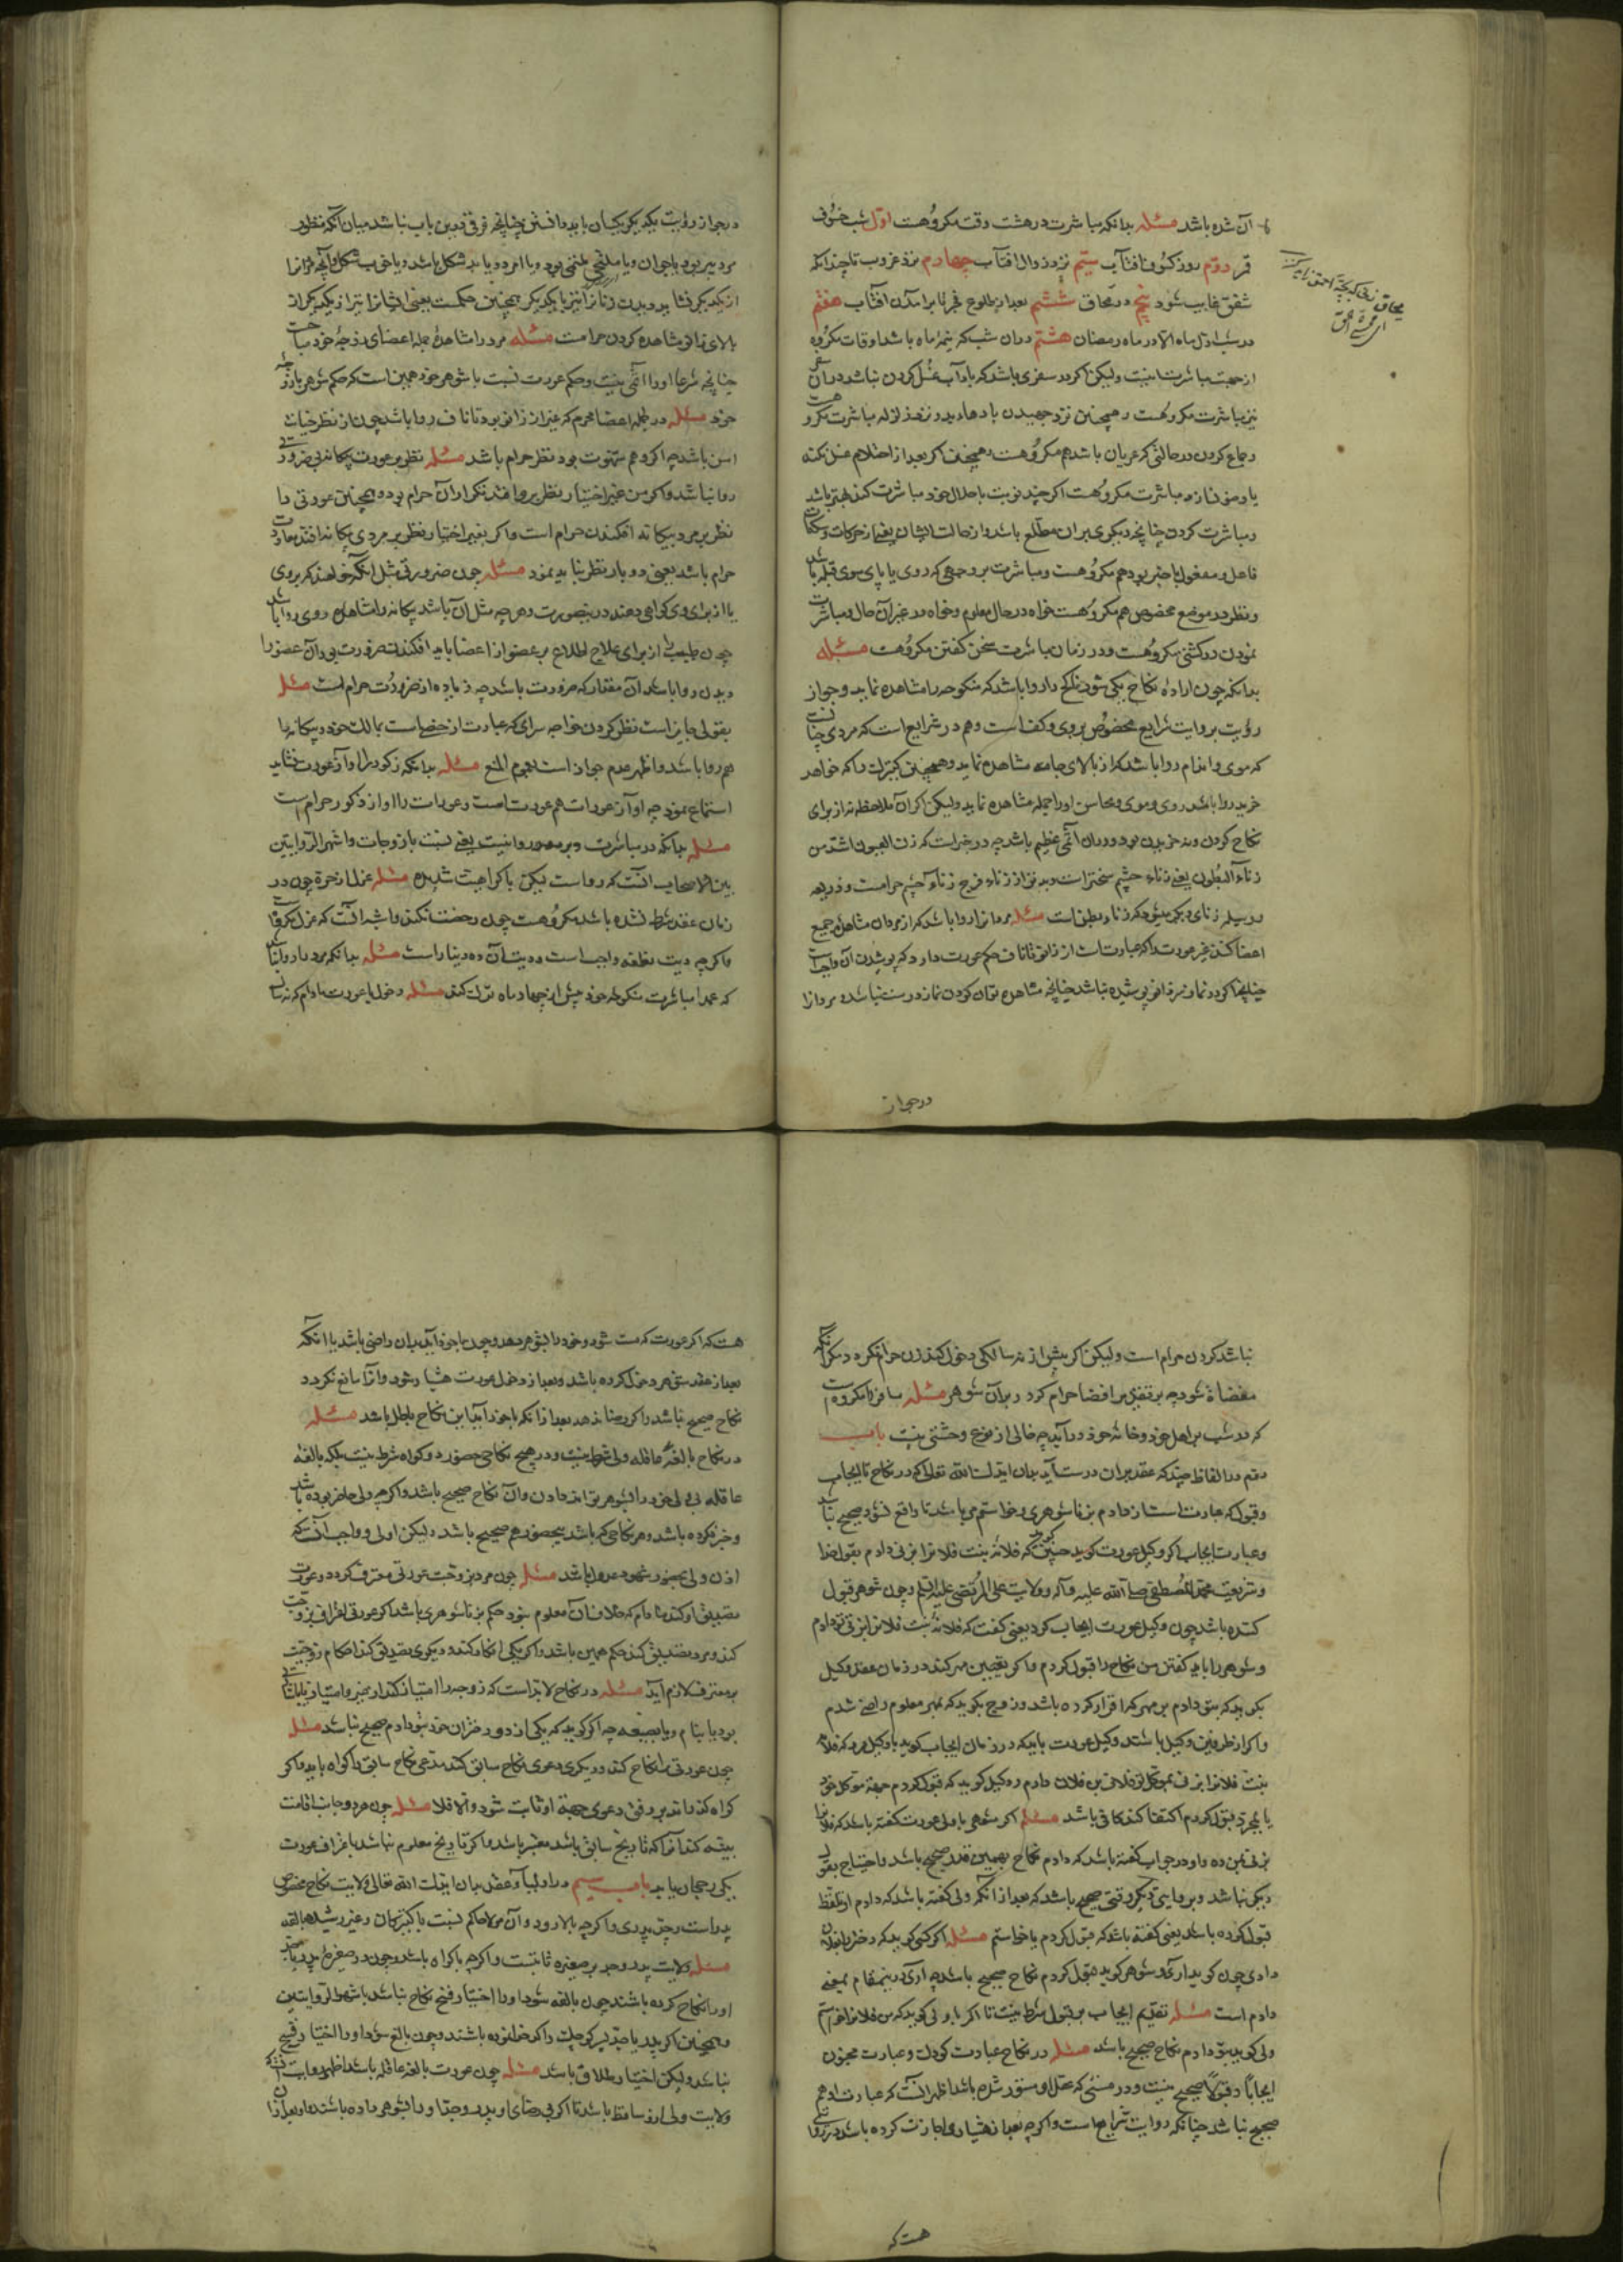 آن شده باشد مسئله بدانکه مباشرت در هشت وقت مکروهست اول شب خسوف
قمر دوم روز کسوف آفتاب سیم نزد زوال افتاب چهارم نزد غروب تا چندانکه
شفق غایب شود پنج در محاق ششم بعد از طلوع فجر تا برامدن افتاب هفتم
در شب اول ماه الا در ماه رمضان هشتم در ان شب که نیمه ماه باشد اوقات مکروه
از جهت مباشرت اینست ولیکن اکر در سفری باشد که با او آب غسل کردن نباشد در آن
نیز مباشرت مکروهست و همچنین نزد جهیدن بادهاء بد و نزد زلزله مباشرت مکروهست
و جماع کردن در حالتی که عریان باشد هم مکروهست و همچنین اکر بعد از احتلام غسل نکند
یا وضو نسازد مباشرت مکروهست اکر چند نوبت با حلال خود مباشرت کند بهتر باشد
و مباشرت کردن چنانچه دیکری بر ان مطلع باشد و از حالت ایشان یعنی از حرکات و سکنات
فاعل و مفعول با خبر بود هم مکروهست و مباشرت بر وجهی که روی یا پای سوی قبله باشد
و نظر در موضع مخصوص هم مکروهست خواه در حال معلوم و خواه در غیر آن حال و مباشرت
نمودن در کشتی مکروهست و در زمان مباشرت سخن کفتن مکروهست مسئله
بدانکه چون اراده نکاح یکی شود ناکح را روا باشد که منکوحه را مشاهده نماید و جواز
رؤیت بروایت شرایع مخصوص بروی و کف است و هم در شرایع است که مردی چنانست
که موی و اندام روا باشد که از بالای جامه مشاهده نماید و همچنین کنیزک را که خواهد
خرید روا باشد روی و موی و محاسن او را جمله مشاهده نماید ولیکن اکر آن ملاحظه نه از برای
نکاح کردن و نه خریدن بود در ان اثمی عظیم باشد چه در خبر است که زنا العیون اشد من
زناء البطون یعنی زناء چشم سختر است و بدتر از زناء فرج زناء چشم حرامست و ذریعه
و وسیله زنای دیکر میشود که زناء بطن است مسئله مردانرا روا باشد که از مردان مشاهده جمیع
اعضا کنند غیر عورت را که عبارتست از زانو تا ناف حکم عورت دارد که پوشیدن آن واجبست
چنانچه اکر در نماز نیز زانو پوشیده نباشد چنانچه مشاهده توان کردن نماز درست نباشد و مردانرا
در جواز
در جواز رؤیت یکدیکر یکسان باید دانستن چنانچه فرقی درین باب نباشد میان آنکه منظور
مرد پیر بود یا جوان و یا ملتحی بود و یا امرد و یا بد شکل باشد و یا خوب شکل و آنچه مردانرا
از یکدیکر نشاید دیدن زنانرا نیز با یکدیکر همچنین حکمست یعنی ایشانرا نیز از یکدیکر از
بالای زانو مشاهده کردن حرامست مسئله مرد را مشاهده جمله اعضای زوجه خود مباحست
چنانچه شرعا او را اثمی نیست و حکم عورت نسبت با شوهر خود همین است که حکم شوهر با زوجه
خود مسئله در جمله اعضا محرم که غیر از زانو بود تا ناف روا باشد چون از نظر خیانت
ایمن باشد چه اکر وهم شهوت بود نظر حرام باشد مسئله نظر بر عورت بیکانه بی ضرورت
روا نباشد و اکر من غیر اختیار نظر بر وی افتد تکرار آن حرام بود و همچنین عورتی را
نظر بر مرد بیکانه افکندن حرام است و اکر بغیر اختیار نظر بر مردی بیکانه افتد معاودت
حرام باشد یعنی دو بار نظر نباید نمود مسئله چون ضرورتی مثل انکه خواهند که بر وی
یا از برای وی کواهی دهند در ینصورت و هر چه مثل آن باشد بیکانه را مشاهده روی روا باشد
چون طبیب از برای علاج اطلاع بر عضو از اعضا باید افکند نه ضرورت بی دران عضو را
دیدن روا باشد آن مقدار که ضرورت باشد چه زیاده از ضرورت حرام است مسئله
بقولی جایز است نظر کردن خواجه سرای که عبارت از خصی است بمالک خود و بیکانه را
هم روا باشد و اظهر عدم جواز است لعموم المنع مسئله بدانکه ذکور را آواز عورت نشاید
استماع نمود چه اواز عورات هم عورت است و عورات را اواز ذکور حرام نیست
مسئله بدانکه در مباشرت دبر محذور وا نیست یعنی نسبت با زوجات و اشهر الروایتین
بین الاصحاب آنست که رواست لیکن با کراهیت شدیده مسئله عزل از حره چون در
زمان عقد شرط نشده باشد مکروهست چون رخصت نکند و اشبه انست که عزل مکروه
و اکر چه دیت نطفه واجب است و دیت آن ده دینار است مسئله بدانکه مرد را روا نباشد
که عمدا مباشرت منکوحه خود بیش از چهار ماه ترک کند مسئله دخول با عورت مادام که نه ساله
نباشد کردن حرام است ولیکن اکر بیش از نه سالکی دخول کند زن حرام نکردد مکر آنکه
مفضاة شود چه بر تقدیر افضا حرام کردد بر ان شوهر مسئله مسافر را مکروهست
که در شب بر اهل خود و خانه خود در آید چه خالی از نوع وحشتی نیست باب
دوم در الفاظ چند که عقد بران درست آید بدان ایدک الله تعالی که در نکاح تا ایجاب
و قبول که عبارتست از دادم بزنا شوهری و خواستم مر باشد تا واقع نشود صحیح نباشد
و عبارت ایجاب اکر وکیل عورت کوید چنین کوید که فلانه بنت فلانرا بزنی دادم بقول خدا
و شریعت محمد المصطفی صلی الله علیه و آله و ولایت علی المرتضی علیه السلم و چون شوهر قبول
کننده باشد چون وکیل عورت ایجاب کرد یعنی کفت که فلانه بنت فلانرا بزنی بتو دادم
و شوهر را باید کفتن من نکاح را قبول کردم و اکر تعیین مهر کند در زمان عقد وکیل
بکوید که بتو دادم بر مهر که اقرار کرده باشد و زوج بکوید که بمهر معلوم راضی شدم
و اکر از طرفین وکیل باشند وکیل عورت باید که در زمان ایجاب کوید با وکیل مرد که فلانه
بنت فلانرا بزنی بموکل تو فلان بن فلان دادم و وکیل کوید که قبول کردم جهة موکل خود
یا بمجرد قبول کردم اکتفا کند کافی باشد مسئله اکر شخصی با ولی عورت کفته باشد که فلانرا
بزنی بمن ده و او در جواب کفته باشد که دادم نکاح بهمین قدر صحیح باشد و احتیاج بقول
دیکر نباشد و بروایتی دیکر وقتی صحیح باشد که بعد از آنکه ولی کفته باشد که دادم او لفظ
قبول کرده باشد یعنی کفته باشد که قبول کردم یا خواستم مسئله اکر کسی کوید که دختر بفلان
دادی چون کوید آری و شوهر کوید قبول کردم نکاح صحیح باشد چه آری درینمقام بمعنی
دادم است مسئله تقدیم ایجاب بر قبول شرط نیست تا اکر با ولی کوید که من فلانرا خواستم
ولی کوید بتو دادم نکاح صحیح باشد مسئله در نکاح عبارت کودک و عبارت مجنون
ایجابا و قبولا صحیح نیست و در مستی که عقل او مستور شده باشد اظهر آنست که عبارت او هم
صحیح نباشد چنانکه روایت شرایع است و اکر چه بعد از هشیاری اجازت کرده باشد و در روایتی
هست که
هست که اکر عورت که مست شود و خود را بشوهر دهد و چون با خود آید بدان راضی باشد یا انکه
بعد از عقد شوهر دخول کرده باشد و بعد از دخول عورت هشیار شود و از آن مانع نکردد
نکاح صحیح باشد و اکر رضا ندهد بعد از آنکه با خود آید این نکاح باطل باشد مسئله
در نکاح بالغه عاقله ولی شرط نیست و در هیچ نکاحی حضور دو کواه شرط نیست بلکه بالغه
عاقله بی ولی خود را بشوهر تواند دادن و آن نکاح صحیح باشد و اکر چه ولی حاضر بوده باشد
و خبر نکرده باشد و هر نکاحی که باشد بیحضور هم صحیح باشد ولیکن اولی و واجب آنست که
اذن ولی و بحضور شهود عدول باشد مسئله چون مرد بزوجیت عورتی معترف کردد و عورت
تصدیق او کند مادام که خلاف آن معلوم نبود حکم بزنا شوهری باشد اکر عورتی اعتراف بزوجیت
کند و مرد تصدیق کند حکم همین باشد و اکر یکی انکار کند و دیکری تصدیق کند احکام زوجیت
بر معترف لازم آید مسئله در نکاح لابد است که زوجه را امتیاز کنند از غیر و امتیاز یا باشارت
بود یا بنام و یا بصفه چه اکر کوید که یکی از دو دختران خود بتو دادم صحیح نباشد مسئله
چون عورتی را نکاح کند و دیکری دعوی نکاح سابق کند مدعی نکاح سابق را کواه باید و اکر
کواه کذراند بر وفق دعوی جهة او ثابت شود و الا فلا مسئله چون هر دو جانب اقامت
بینه کنند آنرا که تاریخ سابق باشد معتبر باشد و اکر تاریخ معلوم نباشد باعتراف عورت
یکی رجحان یابد باب سیم در اولیاء عقد بدان ایدک الله تعالی ولایت نکاح مخصوص
پدر است و جد پدری و اکر چه بالا رود و آن مولا حاکم نسبت با کنیزکان و غیر رشیده بالغه
مسئله ولایت پدر و جد بر صغیره ثابتست و اکر چه با کراه باشد و چون در صغر پدر یا جد
او را نکاح کرده باشند چون بالغه شود او را اختیار فسخ نکاح نباشد باشهر الروایتین
و همچنین اکر پدر یا جد پسر کوچک را کد خدا کرده باشند و چون بالغ شود او را اختیار فسخ
نباشد ولیکن اختیار طلاق باشد مسئله چون عورت بالغه عاقله باشد اظهر روایت آنست که
ولایت ولی ازو ساقط باشد تا اکر بی رضای او پدر و جد او را بشوهر داده باشند و بعد از آن